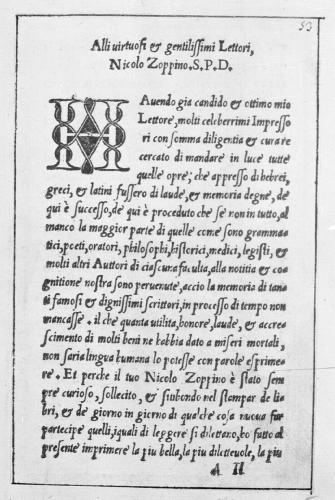 53
Alli virtuosi & gentilissimi Lettori,
Nicolo Zoppino.S.P.D.
HAuendo gia candido & ottimo mio
Lettore, molti celeberrimi Impresso
ri con somma diligentia & cura re
cercato di mandare in luce tutte
quelle opre; che appresso di hebrei,
greci, & latini fussero di laude, & memoria degne, de
qui è successo, de qui è proceduto che se non in tutto, al
manco la maggior parte di quelle come sono gramma
tici, poeti, oratori, philosophi, historici, medici, legisti, &
molti altri Auttori di ciascuna faculta, alla notitia & co
gnitione nostra sono peruenute, accio la memoria di tan
ti famosi & dignissimi scrittori, in processo di tempo non
mancasse. il che quanta utilita, honore, laude, & accre
scimento di molti beni ne habbia dato a miseri mortali,
non saria lingua humana lo potesse con parole esprime
re. Et perche il tuo Nicolo Zoppino è stato sem
pre curioso, sollecito, & in stampar de li
bri, & de giorno in giorno di qualche cosa nuoua far
partecipe quelli, iquali di leggere si dilettano, ho fatto al
presente imprimere la piu bella, la piu diletteuole, la piu
A II